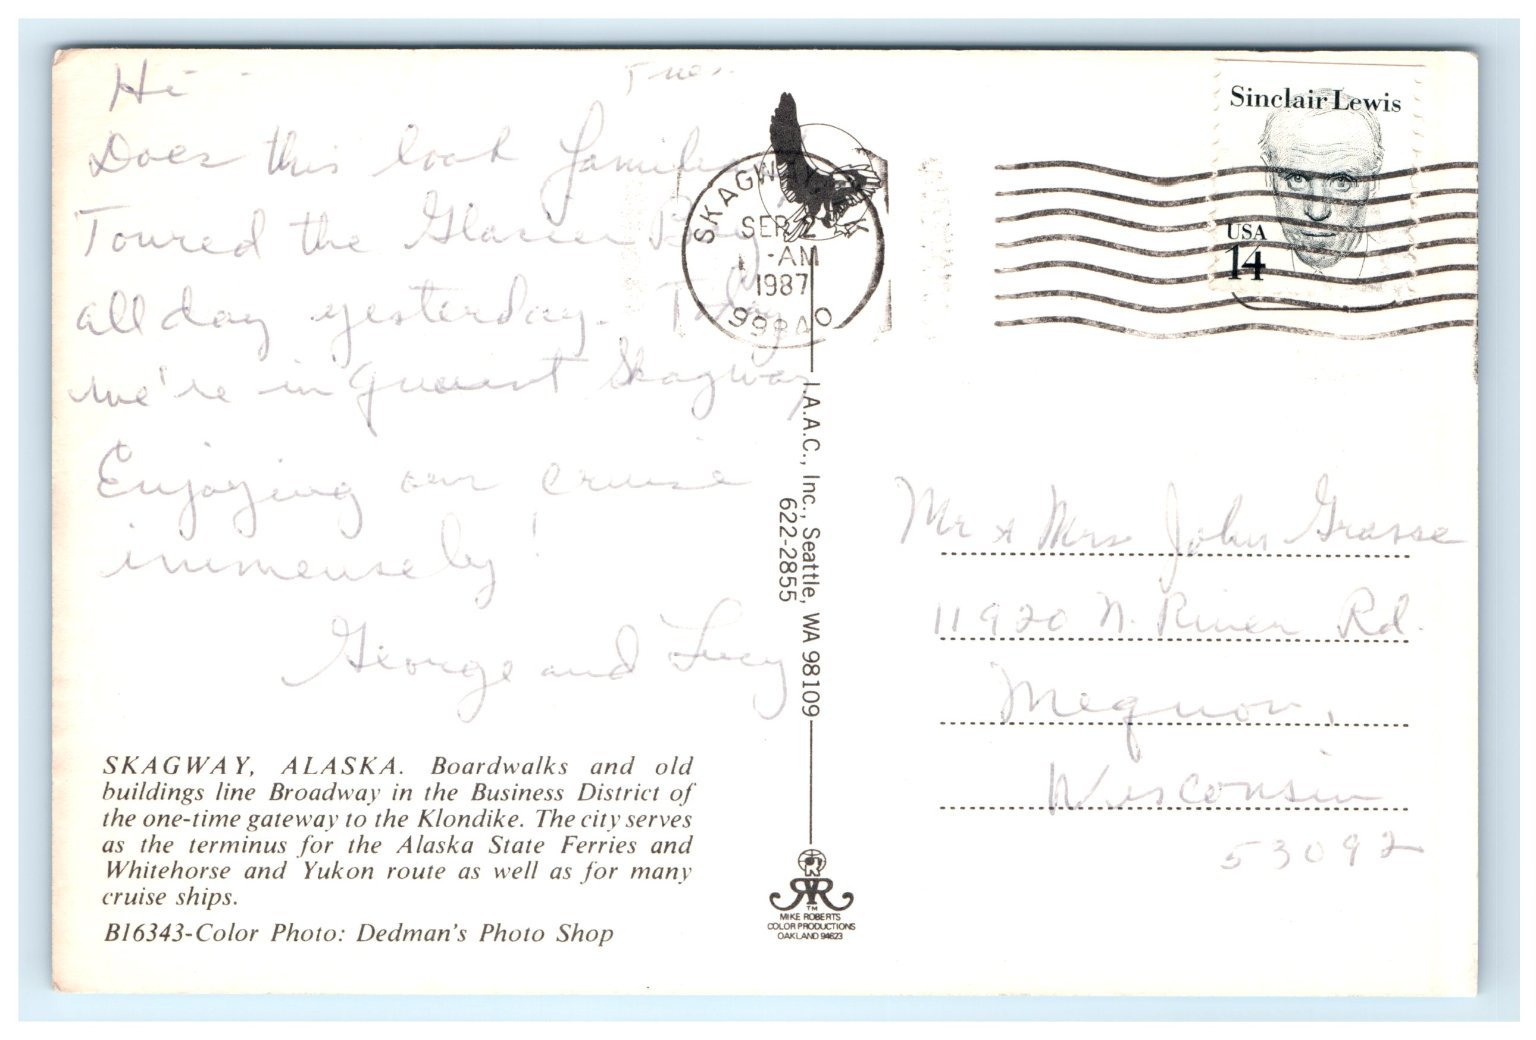 Hi - Tues.
Does this look familiar
Toured the Glacier Bay
all day yesterday. Today
we're in quaint Skagway
Enjoying our cruise
immensely!
George and Lucy
SKAGWAY, ALASKA. Boardwalks and old
buildings line Broadway in the Business District of
the one-time gateway to the Klondike. The city serves
as the terminus for the Alaska State Ferries and
Whitehorse and Yukon route as well as for many
cruise ships.
B16343-Color Photo: Dedman's Photo Shop
SKAGWAY AK
SEP 2
-AM
1987
99840
I.A.A.C., Inc., Seattle, WA 98109
622-2855
TM
MIKE ROBERTS
COLOR PRODUCTIONS
OAKLAND 94623
Sinclair Lewis
USA
14
Mr & Mrs John Grasse
11920 N. River Rd.
Mequon,
Wisconsin
53092